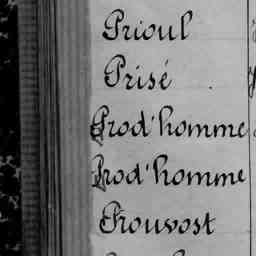 Prioul
Prisé
Prod'homme
Prod'homme
Prouvost